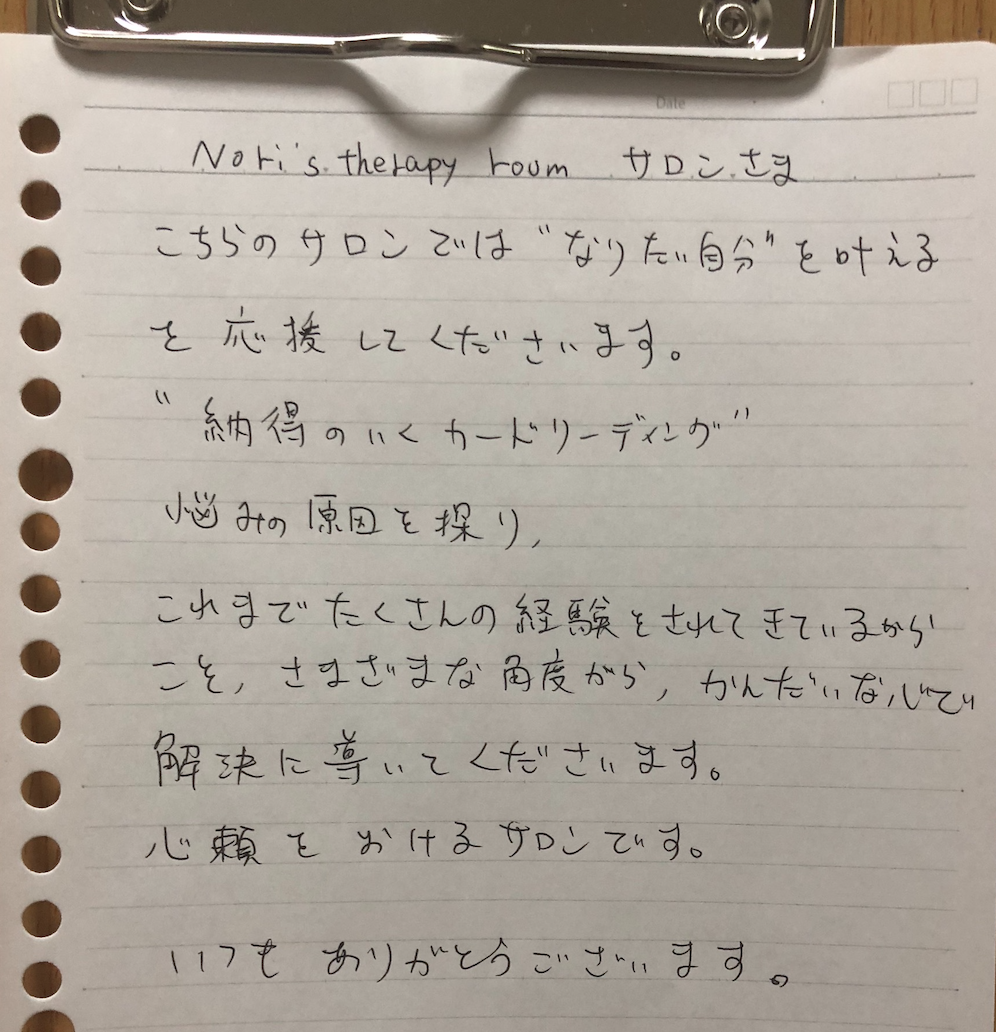 Date
Nori's therapy room サロンさま
こちらのサロンでは“なりたい自分”を叶える
を応援してくださいます。
“納得のいくカードリーディング”
悩みの原因を探り,
これまでたくさんの経験をされてきているから
こそ,さまざまな角度がら,かんだいな心で
解決に導いてくださいます。
心頼をおけるサロンです。
いつもありがとうございます。